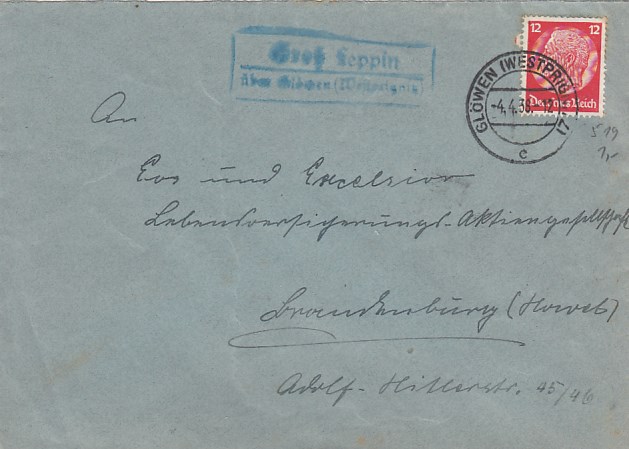 Groß Leppin
über Glöwen (Westprignitz)
12 12
Deutsches Reich
GLÖWEN (WESTPRIGNITZ)
-4.4.38
c
519
1,-
An
Eos und Excelsior
Lebensversicherungs-Aktiengesellschaft
Brandenburg (Havel)
Adolf-Hitlerstr. 45/46